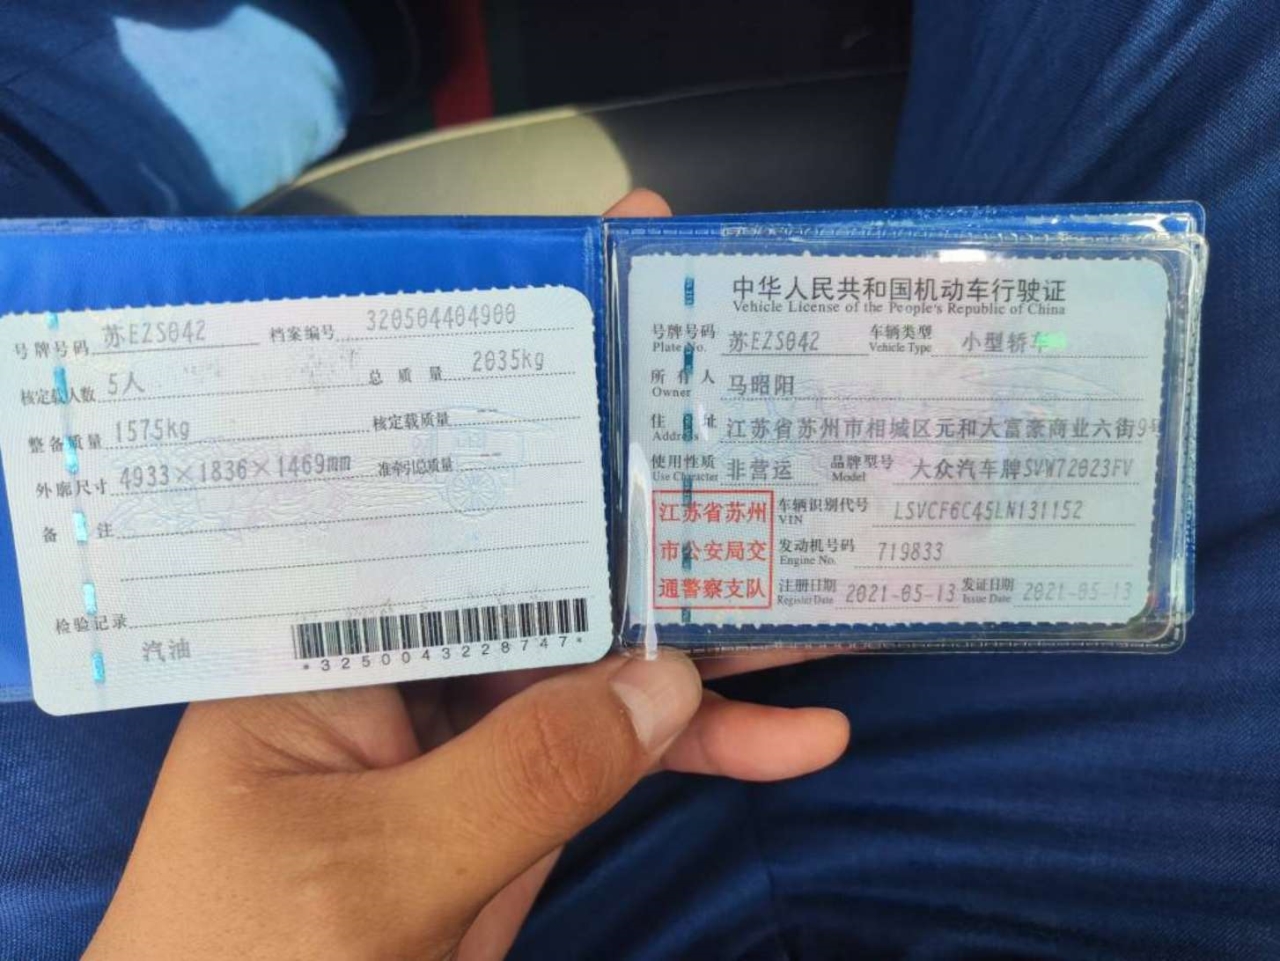 号牌号码 苏EZS042 档案编号 320504404900
核定载人数 5人 总质量 2035kg
整备质量 1575kg 核定载质量 --
外廓尺寸 4933×1836×1469mm 准牵引总质量 --
备注
检验记录
汽油
*3250043228747*
中华人民共和国机动车行驶证
Vehicle License of the People's Republic of China
号牌号码 苏EZS042 车辆类型 小型轿车
Plate No. Vehicle Type
所有人 马昭阳
Owner
住址 江苏省苏州市相城区元和大富豪商业六街9号
Address
使用性质 非营运 品牌型号 大众汽车牌SVW72023FV
Use Character Model
江苏省苏州
市公安局交
通警察支队
车辆识别代号 LSVCF6C45LN131152
VIN
发动机号码 719833
Engine No.
注册日期 2021-05-13 发证日期 2021-05-13
Register Date Issue Date